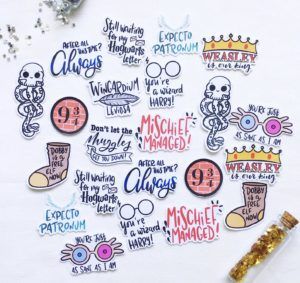 Still waiting
for my
Hogwarts
letter
EXPECTO
PATRONUM
AFTER ALL
THIS TIME?
Always
WEASLEY
is our king
WINGARDIUM
LEVIOSA
You're
a wizard
HARRY!
9 3/4
Don't let the
Muggles
GET YOU DOWN!
MISCHIEF
MANAGED!
YOU'RE JUST
AS SANE AS I AM
DOBBY
IS A
FREE
ELF
NOW
Still waiting
for my
Hogwarts
letter
AFTER ALL
THIS TIME?
Always
9 3/4
WEASLEY
is our king
EXPECTO
PATRONUM
You're
a wizard
HARRY!
MISCHIEF
MANAGED!
DOBBY
IS A
FREE
ELF
NOW
YOU'RE JUST
AS SANE AS I AM